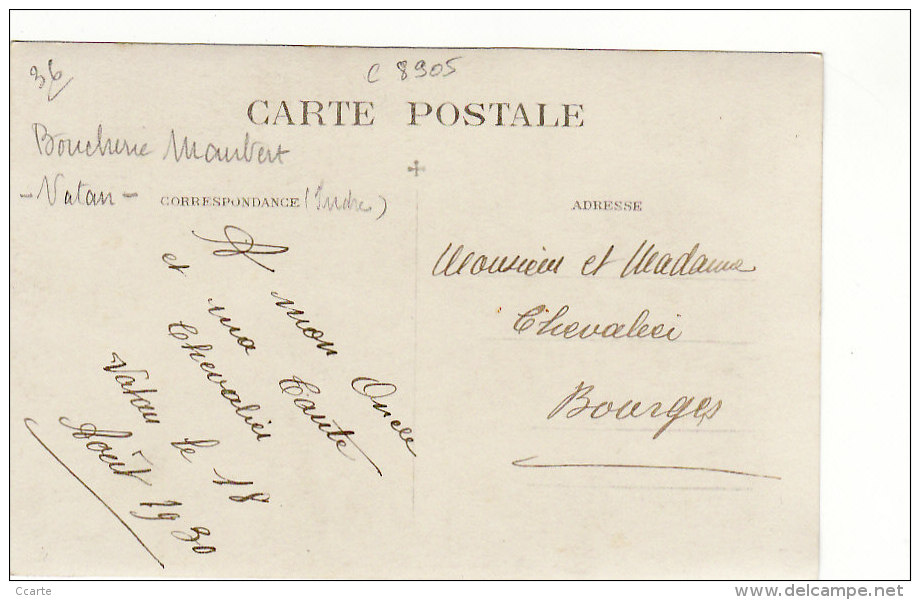 36
C 8905
CARTE POSTALE
Boucherie Maubert
- Vatan - CORRESPONDANCE (Indre)
ADRESSE
A mon Oncle
et ma Tante
Chevalier
Vatan le 18
Août 1930
Monsieur et Madame
Chevalier
Bourges
Ccarte
www.delcampe.net